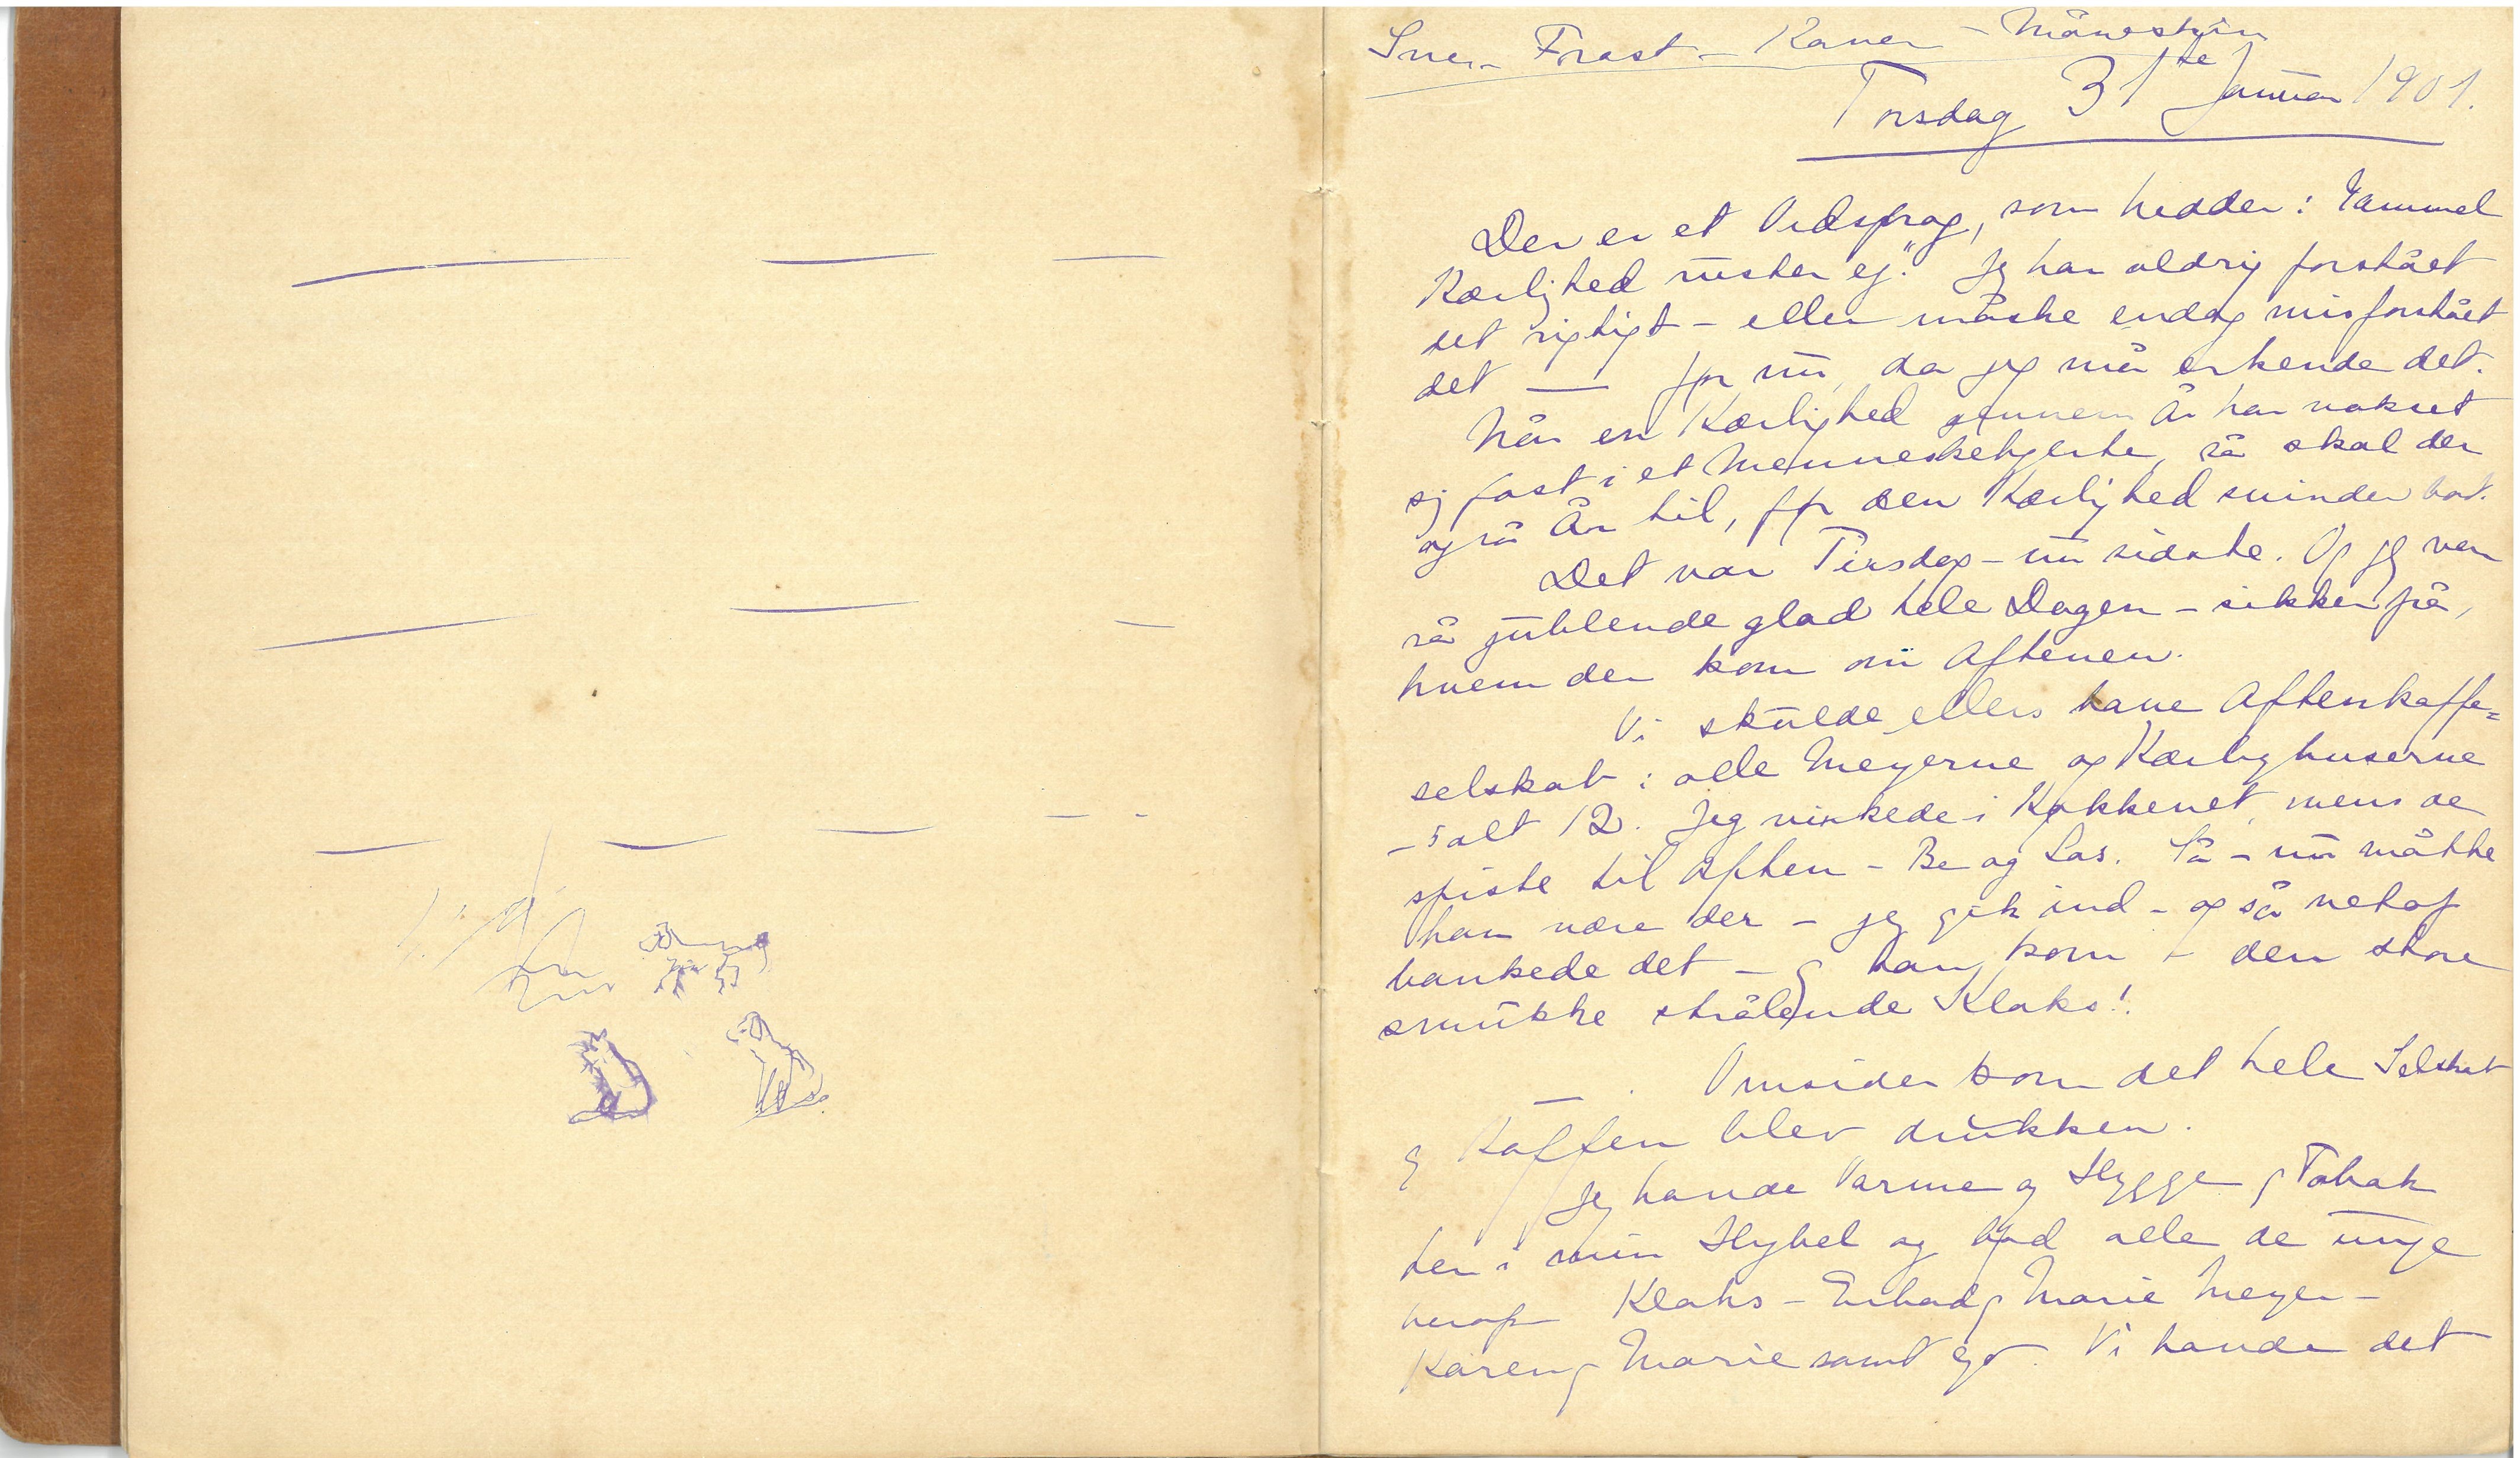 Sne – Frost – Kaner – Måneskin
Torsdag 31te Januar 1901.
Der er et Ordsprog, som hedder: Gammel
Kærlighed ruster ej." Jeg har aldrig forstået
det rigtigt – eller måske endog misforstået
det — før nu, da jeg må erkende det.
Når en Kærlighed gennem År har vokset
sig fast i et Menneskehjerte, så skal der
også År til, før den Kærlighed svinder bort.
Det var Tirsdag – nu sidste. Og jeg var
så jublende glad hele Dagen – sikker på,
hvem der kom om Aftenen.
Vi skulde ellers have Aftenkaffe=
selskab: alle Meyerne og Kærbyhuserne
– ialt 12. Jeg virkede i Køkkenet, mens de
spiste til Aften – Be og Las. Så – nu måtte
han være der – jeg gik ind – og så netop
bankede det – og han kom – den store
smukke strålende Klaks!
Omsider kom det hele Selskab
og Kaffen blev drukken.
Jeg havde Varme og Hygge og Tobak
her i min Hybel og bad alle de unge
herop Klaks – Erhard og Marie Meyer –
Karen og Marie samt ego. Vi havde det